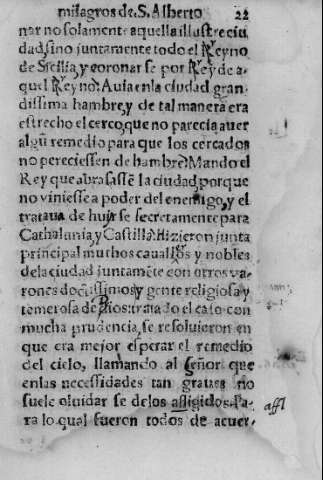 milagros de. S. Alberto 22
nar no solamente aquella illustre ciu
dad, sino juntamente todo el Reyno
de Sicilia, y coronar se por Rey de a-
quel Reyno. Auia en la ciudad gran-
dissima hambre, y de tal manera era
estrecho el cerco, que no parecia auer
algũ remedio para que los cercados
no pereciessen de hambre. Mando el
Rey que abrasassẽ la ciudad, porque
no viniesse a poder del enemigo, y el
trataua de huyr se secretamente para
Cathaluña, y Castilla. Hizieron junta
principal muchos caualľos y nobles
de la ciudad juntamẽte con otros va-
rones doctissimos, y gente religiosa y
temerosa de Dios: tratado el caso con
mucha prudencia, se resoluieron en
que era mejor esperar el remedio
del cielo, llamando al señor que
en las necessidades tan graues no
suele oluidar se de los assigidos. Pa-
ra lo qual fueron todos de acuer-
affl